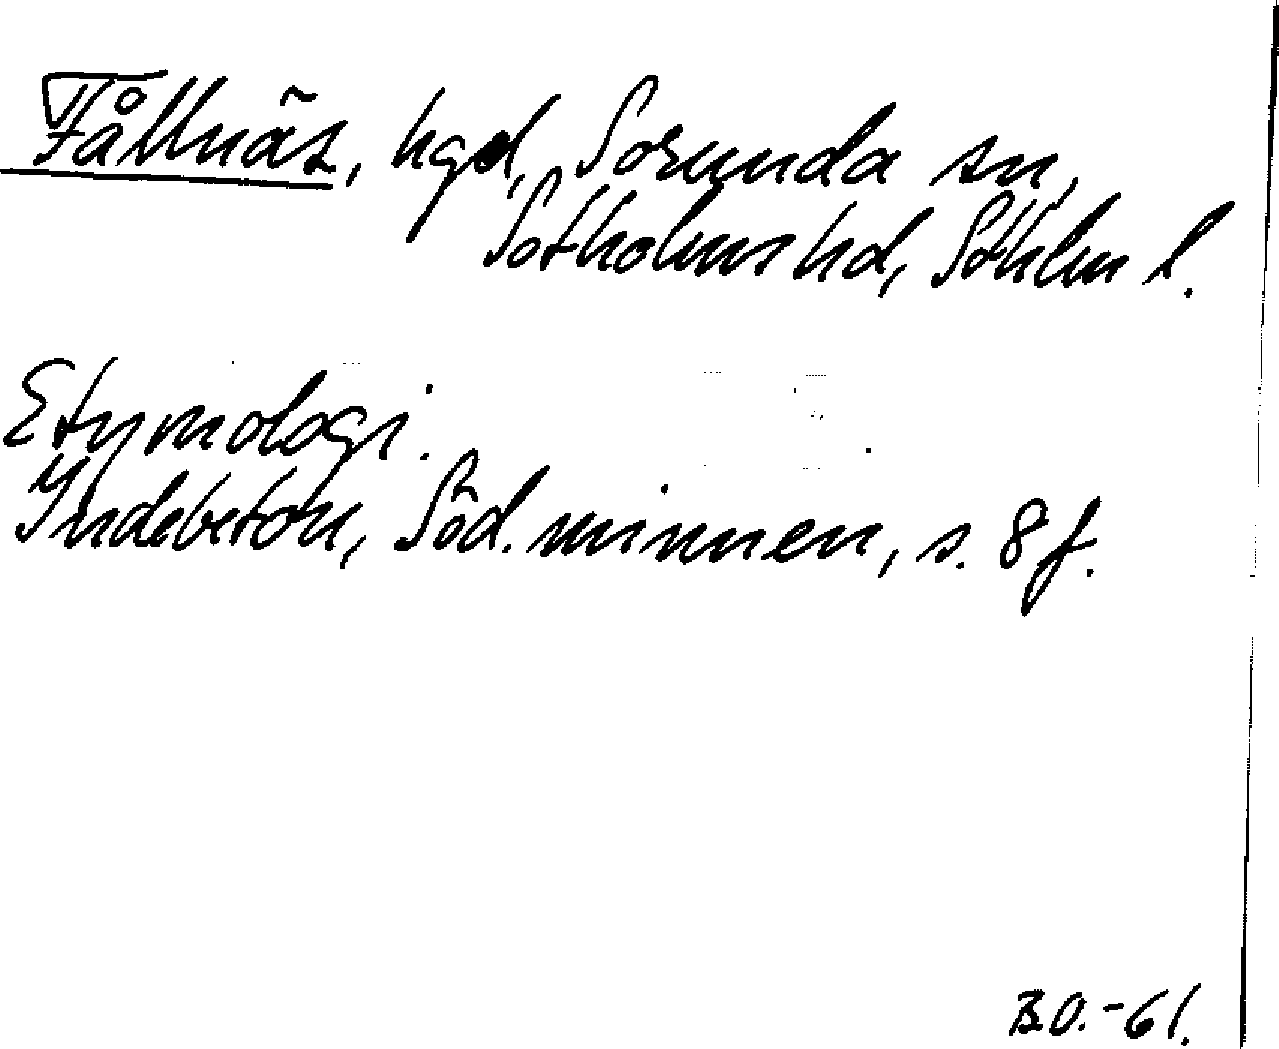 Fållnäs, hgd, Sorunda sn,
Sotholms hd, Sthlm l.
Etymologi.
Indebetou, Söd. minnen, s. 8 f.
B.O. -61.